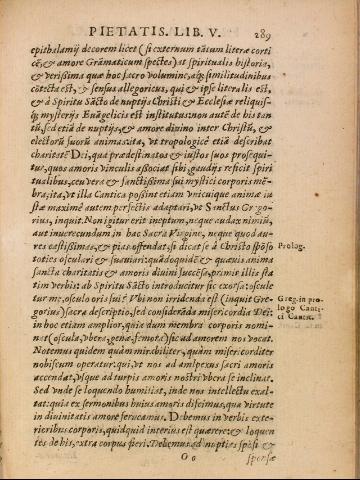 PIETATIS. LIB. V. 289
epithalamij decorem licet (si externum tātum literæ corti
cē, & amore Grāmaticum spectes) at spiritualis historia,
& verissima quæ hoc sacro volumine, atq; similitudinibus
cōtecta est, & sensus allegoricus, qui & ipse literalis est,
& à Spiritu Sācto de nuptijs Christi & Ecclesiæ reliquis-
q; mysterijs Euāgelicis est institutus: non autē de his tan-
tū, sed etiā de nuptijs, & amore diuino inter Christū, &
electorū suorū animas: ita, vt tropologicè etiā describat
charitatē Dei, qua prædestinatos & iustos suos prosequi-
tur, quos amoris vinculis associat sibi, gaudijs reficit spiri
tualibus, ceu vera & sanctissima sui mystici corporis mē-
bra, ita, vt illa Cantica possint etiam vnicuique animæ iu
stæ maximè autem perfectis adaptari, vt Sanctus Grego-
rius, inquit. Non igitur erit ineptum, neque audax nimiū,
aut inuerecundum in hac Sacra Virgine, neque quod au-
res castissimas, & pias offendat, si dicat se à Christo spōso
toties osculari & suauiari: quādoquidē & quæuis anima
sancta charitatis & amoris diuini succēsa, primis illis sta
tim verbis: ab Spiritu Sācto introducitur sic exorsa: oscule
tur me, osculo oris sui: Vbi non irridenda est (inquit Gre-
gorius) sacra descriptio, sed considerāda misericordia Dei:
in hoc etiam amplior, quia dum membra corporis nomi-
nat (oscula, vbera, gena, femora) sic ad amorem nos vocat.
Notemus quidem quàm mirabiliter, quàm misericorditer
nobiscum operatur: qui, vt nos ad amplexus sacri amoris
accendat, vsque ad turpis amoris nostri vbera se inclinat.
Sed vnde se loquendo humiliat, inde nos intellectu exal-
tat: quia ex sermonibus huius amoris discimus, qua virtute
in diuinitatis amore ferueamus. Debemus in verbis exte-
rioribus corporis, quidquid interius est quærere: & loquen
tes de his, extra corpus fieri. Debemus ad nuptias spōsi &
Prolog.
Greg. in pro
logo Canti-
ci Cantic.
O o
sponsæ